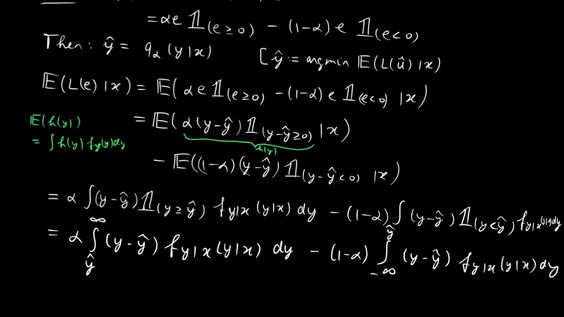 = αe 𝟙(e≥0) − (1-α) e 𝟙(e<0)
Then: ŷ = qα(y|x) [ŷ := argmin E(L(û)|x)
E(L(e)|x) = E(αe 𝟙(e≥0) − (1-α) e 𝟙(e<0) |x)
E(h(y)) = ∫h(y) fy(y)dy
= E(α(y-ŷ)𝟙(y-ŷ≥0) |x)
h(y)
− E((1-α)(y-ŷ) 𝟙(y-ŷ<0) |x)
= α ∫(y-ŷ)𝟙(y≥ŷ) fy|x(y|x) dy − (1-α) ∫(y-ŷ) 𝟙(y<ŷ) fy|x(y|x)dy
= α ∫_ŷ^∞ (y-ŷ) fy|x(y|x) dy − (1-α) ∫_-∞^ŷ (y-ŷ) fy|x(y|x) dy